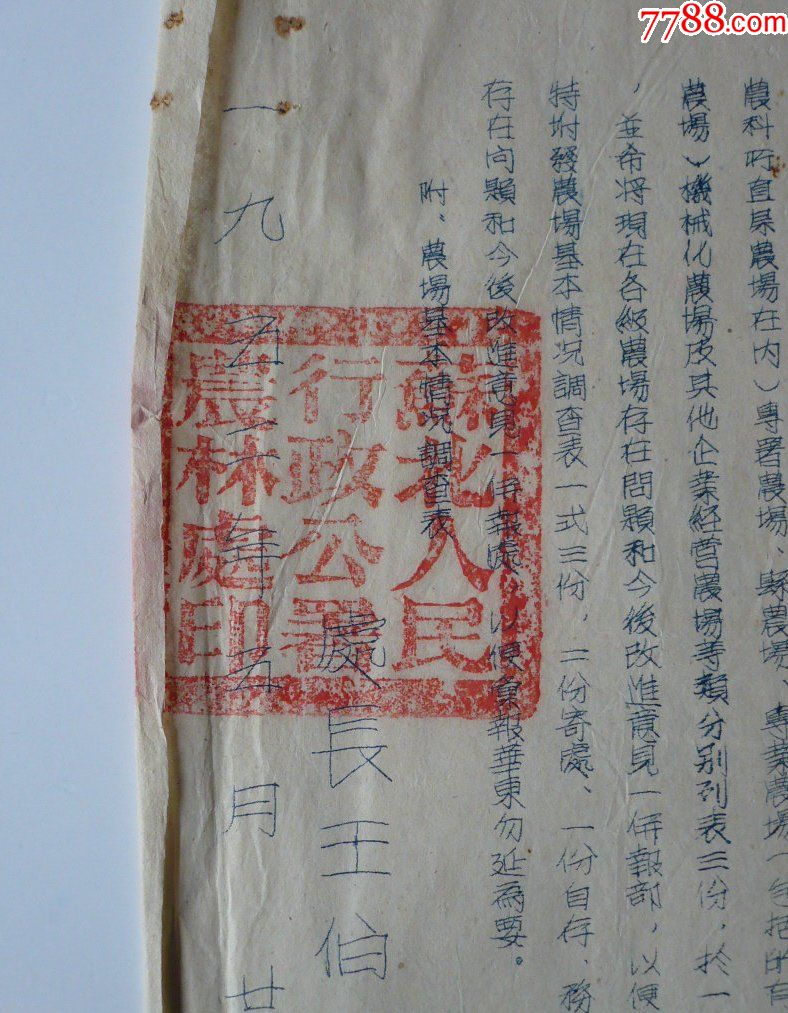 7788.com
農科所直屬農場在內)專署農場、縣農場、專業農場(包括的有
農場)機械化農場及其他企業經營農場等類分别列表三份,於一
,並希將現在各級農場存在問題和今後改進意見一併報部,以便
特附發農場基本情況調查表一式三份,二份寄處、一份自存、務
存在问題和今後改進意見一併報處,以便彙報華東勿延為要。
附、農場基本情況調查表
處長王伯
一九五二年五月廿
蘇北人民
行政公署
農林處印